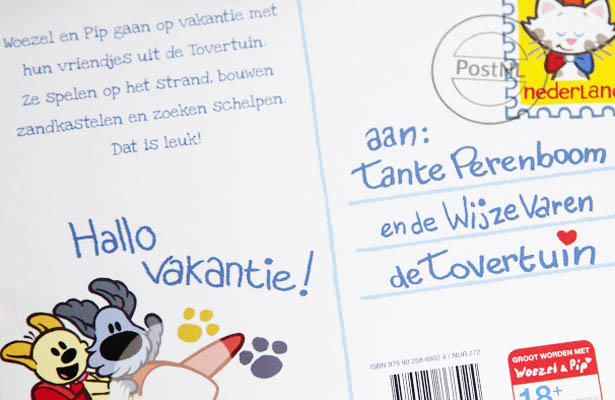 Woezel en Pip gaan op vakantie met
hun vriendjes uit de Tovertuin.
Ze spelen op het strand, bouwen
zandkastelen en zoeken schelpen.
Dat is leuk!
Hallo
vakantie!
PostNL
nederland
aan:
Tante Perenboom
en de Wijze Varen
de Tovertuin
ISBN 978 90 258 6802 4 / NUR 272
GROOT WORDEN MET
Woezel & Pip
18+